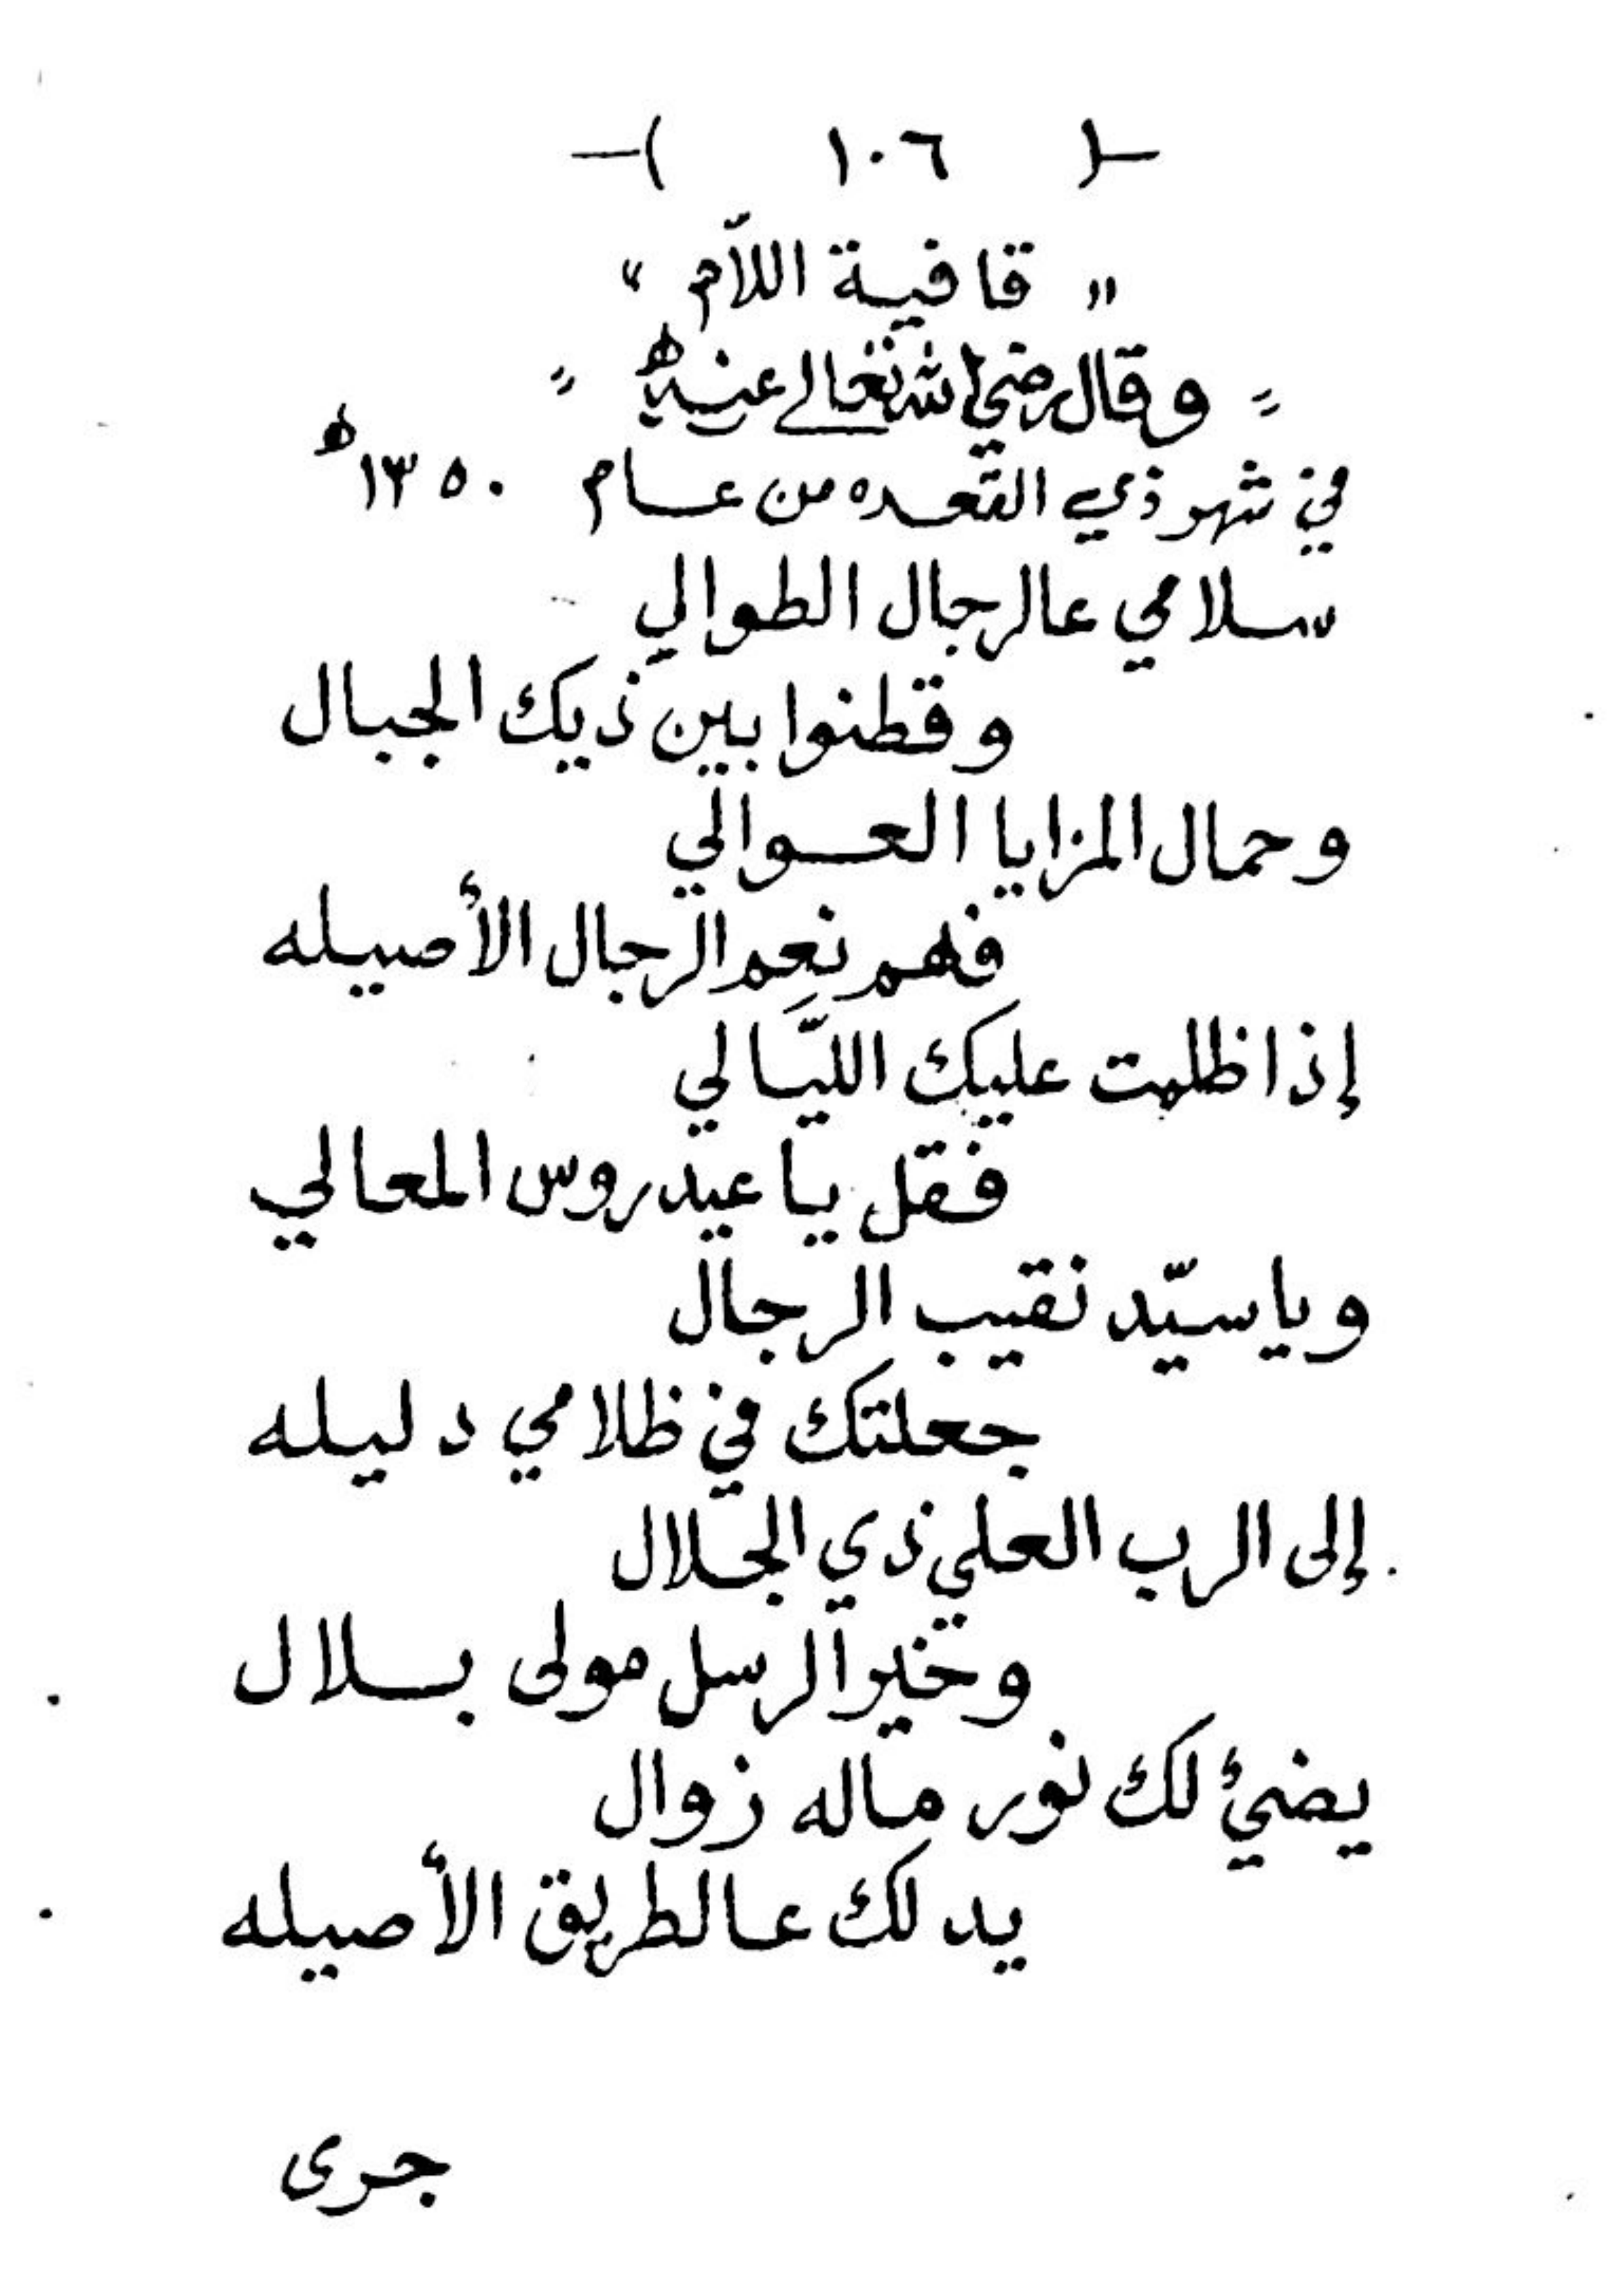 -( ١٠٦ )-
" قافية اللّام "
" وقال رضي الله تعالى عنه "
في شهر ذي القعده من عام ١٣٥٠ه
سلامي عالرجال الطوالي
وقطنوا بين ذيك الجبال
وحمال المزايا العوالي
فهم نعِم الرجال الأصيله
إذا ظلمت عليك الليّالي
فقل يا عيدروس المعالي
ويا سيّد نقيب الرجال
جعلتك في ظلامي دليله
إلى الرب العلي ذي الجلال
وخير الرسل مولى بلال
يضيئ لك نور ماله زوال
يدلك عالطريق الأصيله
جرى